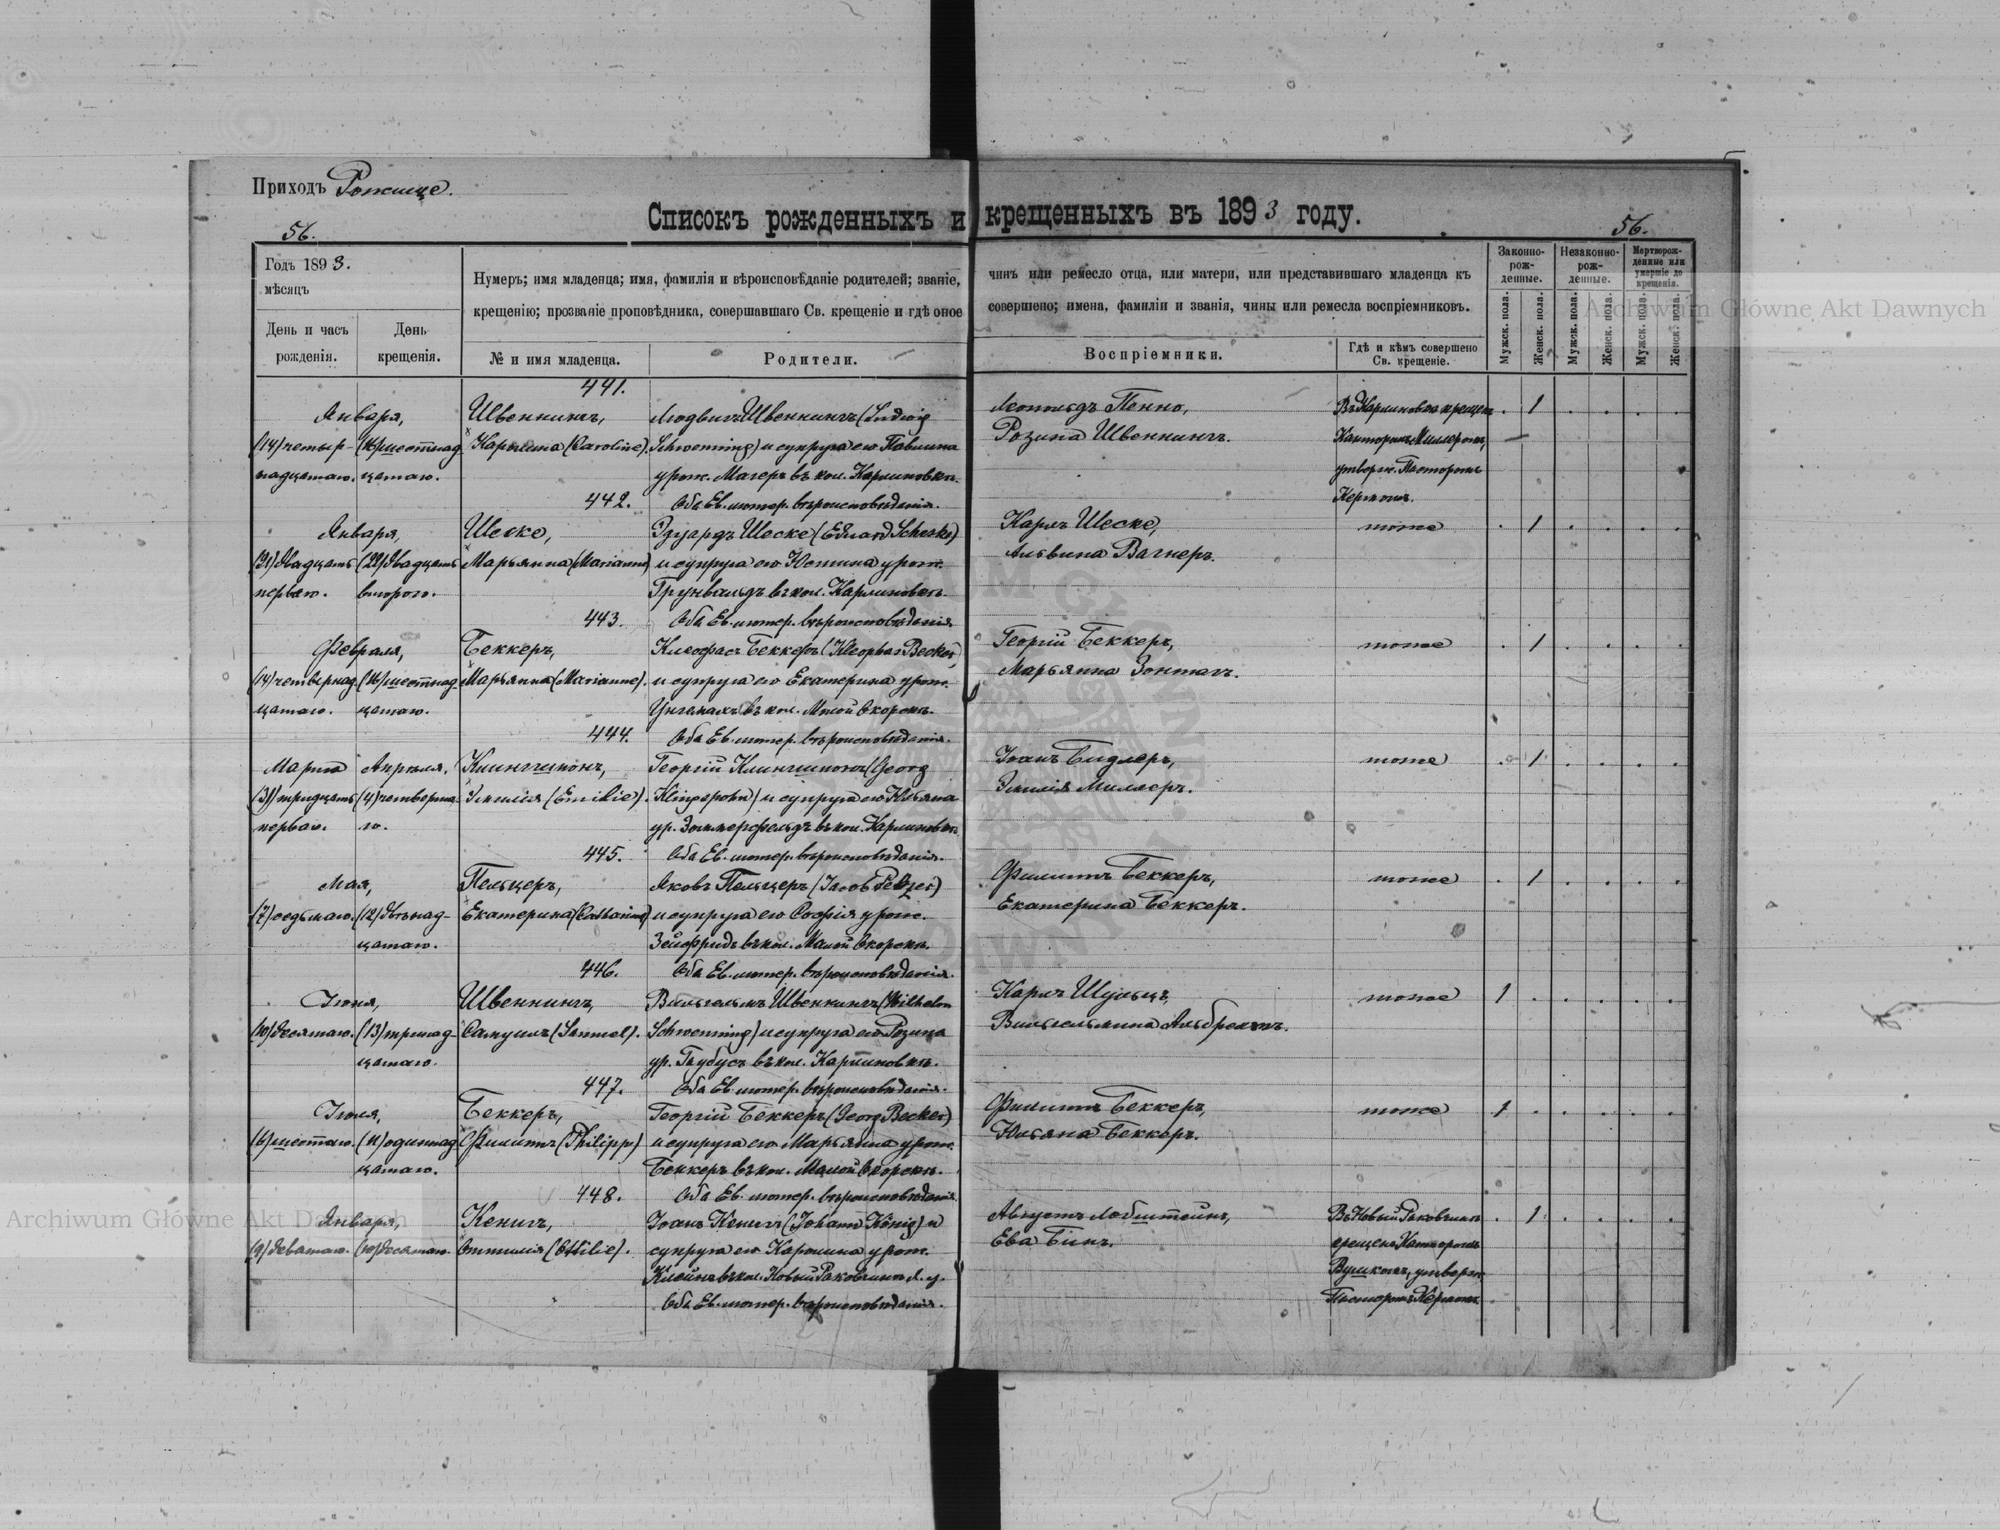 Приходъ Рожище.
Списокъ рожденныхъ и крещенныхъ въ 1893 году.
56.
56.
Годъ 1893.
мѣсяцъ
День и часъ рожденія.
День крещенія.
Нумеръ; имя младенца; имя, фамилія и вѣроисповѣданіе родителей; званіе,
крещенію; прозваніе проповѣдника, совершавшаго Св. крещеніе и гдѣ оное
№ и имя младенца.
Родители.
чинъ или ремесло отца, или матери, или представившаго младенца къ
совершено; имена, фамиліи и званія, чины или ремесла воспріемниковъ.
Воспріемники.
Гдѣ и кѣмъ совершено Св. крещеніе.
Законно-рож-денные.
Незаконно-рож-денные.
Мертворож-денные или умершіе до крещенія.
Мужск. пола.
Женск. пола.
Мужск. пола.
Женск. пола.
Мужск. пола.
Женск. пола.
441.
Января,
(14) четыр-
надцатаго.
(16) шестнад-
цатаго.
Швеннингъ,
Каролина (Caroline).
Людвигъ Швеннингъ (Ludwig
Schwenning) и супруга его Павлина
урож. Магеръ въ кол. Карлиновкѣ.
Оба Ев. лютер. вѣроисповѣданія.
Леопольдъ Пенно,
Розина Швеннингъ.
Въ Карлиновкѣ крещен
Канторомъ Миллеромъ,
утверж. Пасторомъ
Кермомъ.
1
442.
Января,
(21) двадцать
перваго.
(22) двадцать
второго.
Шеске,
Марьянна (Marianne)
Эдуардъ Шеске (Eduard Scheske)
и супруга его Юстина урож.
Грунвальдъ въ кол. Карлиновкѣ.
Оба Ев. лютер. вѣроисповѣданія.
Карлъ Шеске,
Альвина Вагнеръ.
тоже
1
443.
Февраля,
(14) четвернад-
цатаго.
(16) шестнад-
цатаго.
Беккеръ,
Марьянна (Marianne).
Клеофасъ Беккеръ (Kleophas Becker)
и супруга его Екатерина урож.
въ кол. Малой Скоркѣ.
Оба Ев. лютер. вѣроисповѣданія.
Георгій Беккеръ,
Марьянна Зонтагъ.
тоже
1
444.
Марта
(31) тридцать
перваго.
Апрѣля,
(4) четверта-
го.
Клингшпонъ,
Эмилія (Emilie).
Георгій Клингшпонъ (Georg
Klingspohn) и супруга его Юльяна
ур. Зоммерфельдъ въ кол. Карлиновкѣ.
Оба Ев. лютер. вѣроисповѣданія.
Іоанъ Бидлеръ,
Эмилія Миллеръ.
тоже
1
445.
Мая,
(7) седьмаго.
(12) двѣнад-
цатаго.
Пельцеръ,
Екатерина (Catharine)
Яковъ Пельцеръ (Jacob Pelzer)
и супруга его Софія урож.
Зейфридъ въ кол. Малой Скоркѣ.
Оба Ев. лютер. вѣроисповѣданія.
Филиппъ Беккеръ,
Екатерина Беккеръ.
тоже
1
446.
Іюня,
(10) десятаго.
(13) тринад-
цатаго.
Швеннингъ,
Самуилъ (Samuel).
Вильгельмъ Швеннингъ (Wilhelm
Schwenning) и супруга его Розина
ур. Глубусъ въ кол. Карлиновкѣ.
Оба Ев. лютер. вѣроисповѣданія.
Карлъ Шульцъ,
Вильгельмина Альбрехтъ.
тоже
1
447.
Іюля,
(6) шестаго.
(11) одиннад-
цатаго.
Беккеръ,
Филиппъ (Philipp)
Георгій Беккеръ (Georg Becker)
и супруга его Марьянна урож.
Беккеръ въ кол. Малой Скоркѣ.
Оба Ев. лютер. вѣроисповѣданія.
Филиппъ Беккеръ,
Юльяна Беккеръ.
тоже
1
448.
Января,
(9) девятаго.
(10) десятаго.
Кенигъ,
Оттилія (Ottilie).
Іоанъ Кенигъ (Johann König) и
супруга его Каролина урож.
Клейнъ въ кол. Новый Раковчикъ
Оба Ев. лютер. вѣроисповѣданія.
Августъ Лобштейнъ,
Ева Бинъ.
Въ Новый Раковчикъ
крещенъ Канторомъ
утверж.
Пасторомъ Кермомъ.
1
Archiwum Główne Akt Dawnych
Archiwum Główne Akt Dawnych